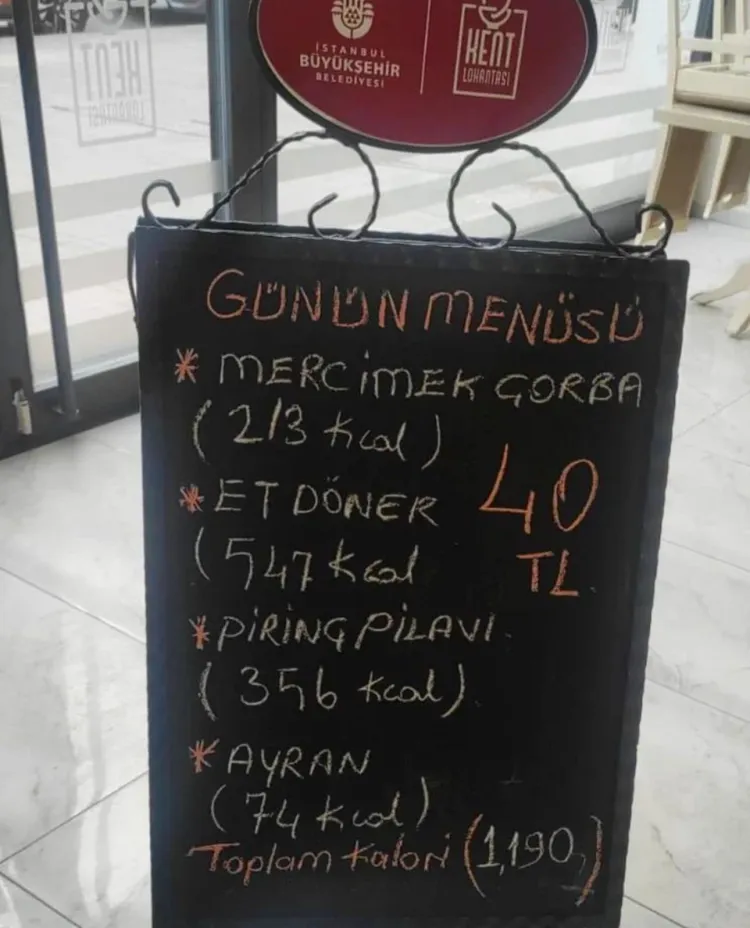 İSTANBUL
BÜYÜKŞEHİR
BELEDİYESİ
KENT
LOKANTASI
GÜNÜN MENÜSÜ
* MERCİMEK ÇORBA
(213 kcal)
* ET DÖNER
(547 kcal
40
TL
* PİRİNÇ PİLAVI
(356 kcal)
* AYRAN
(74 kcal)
Toplam kalori (1,190)
KENT
LOKANTASI